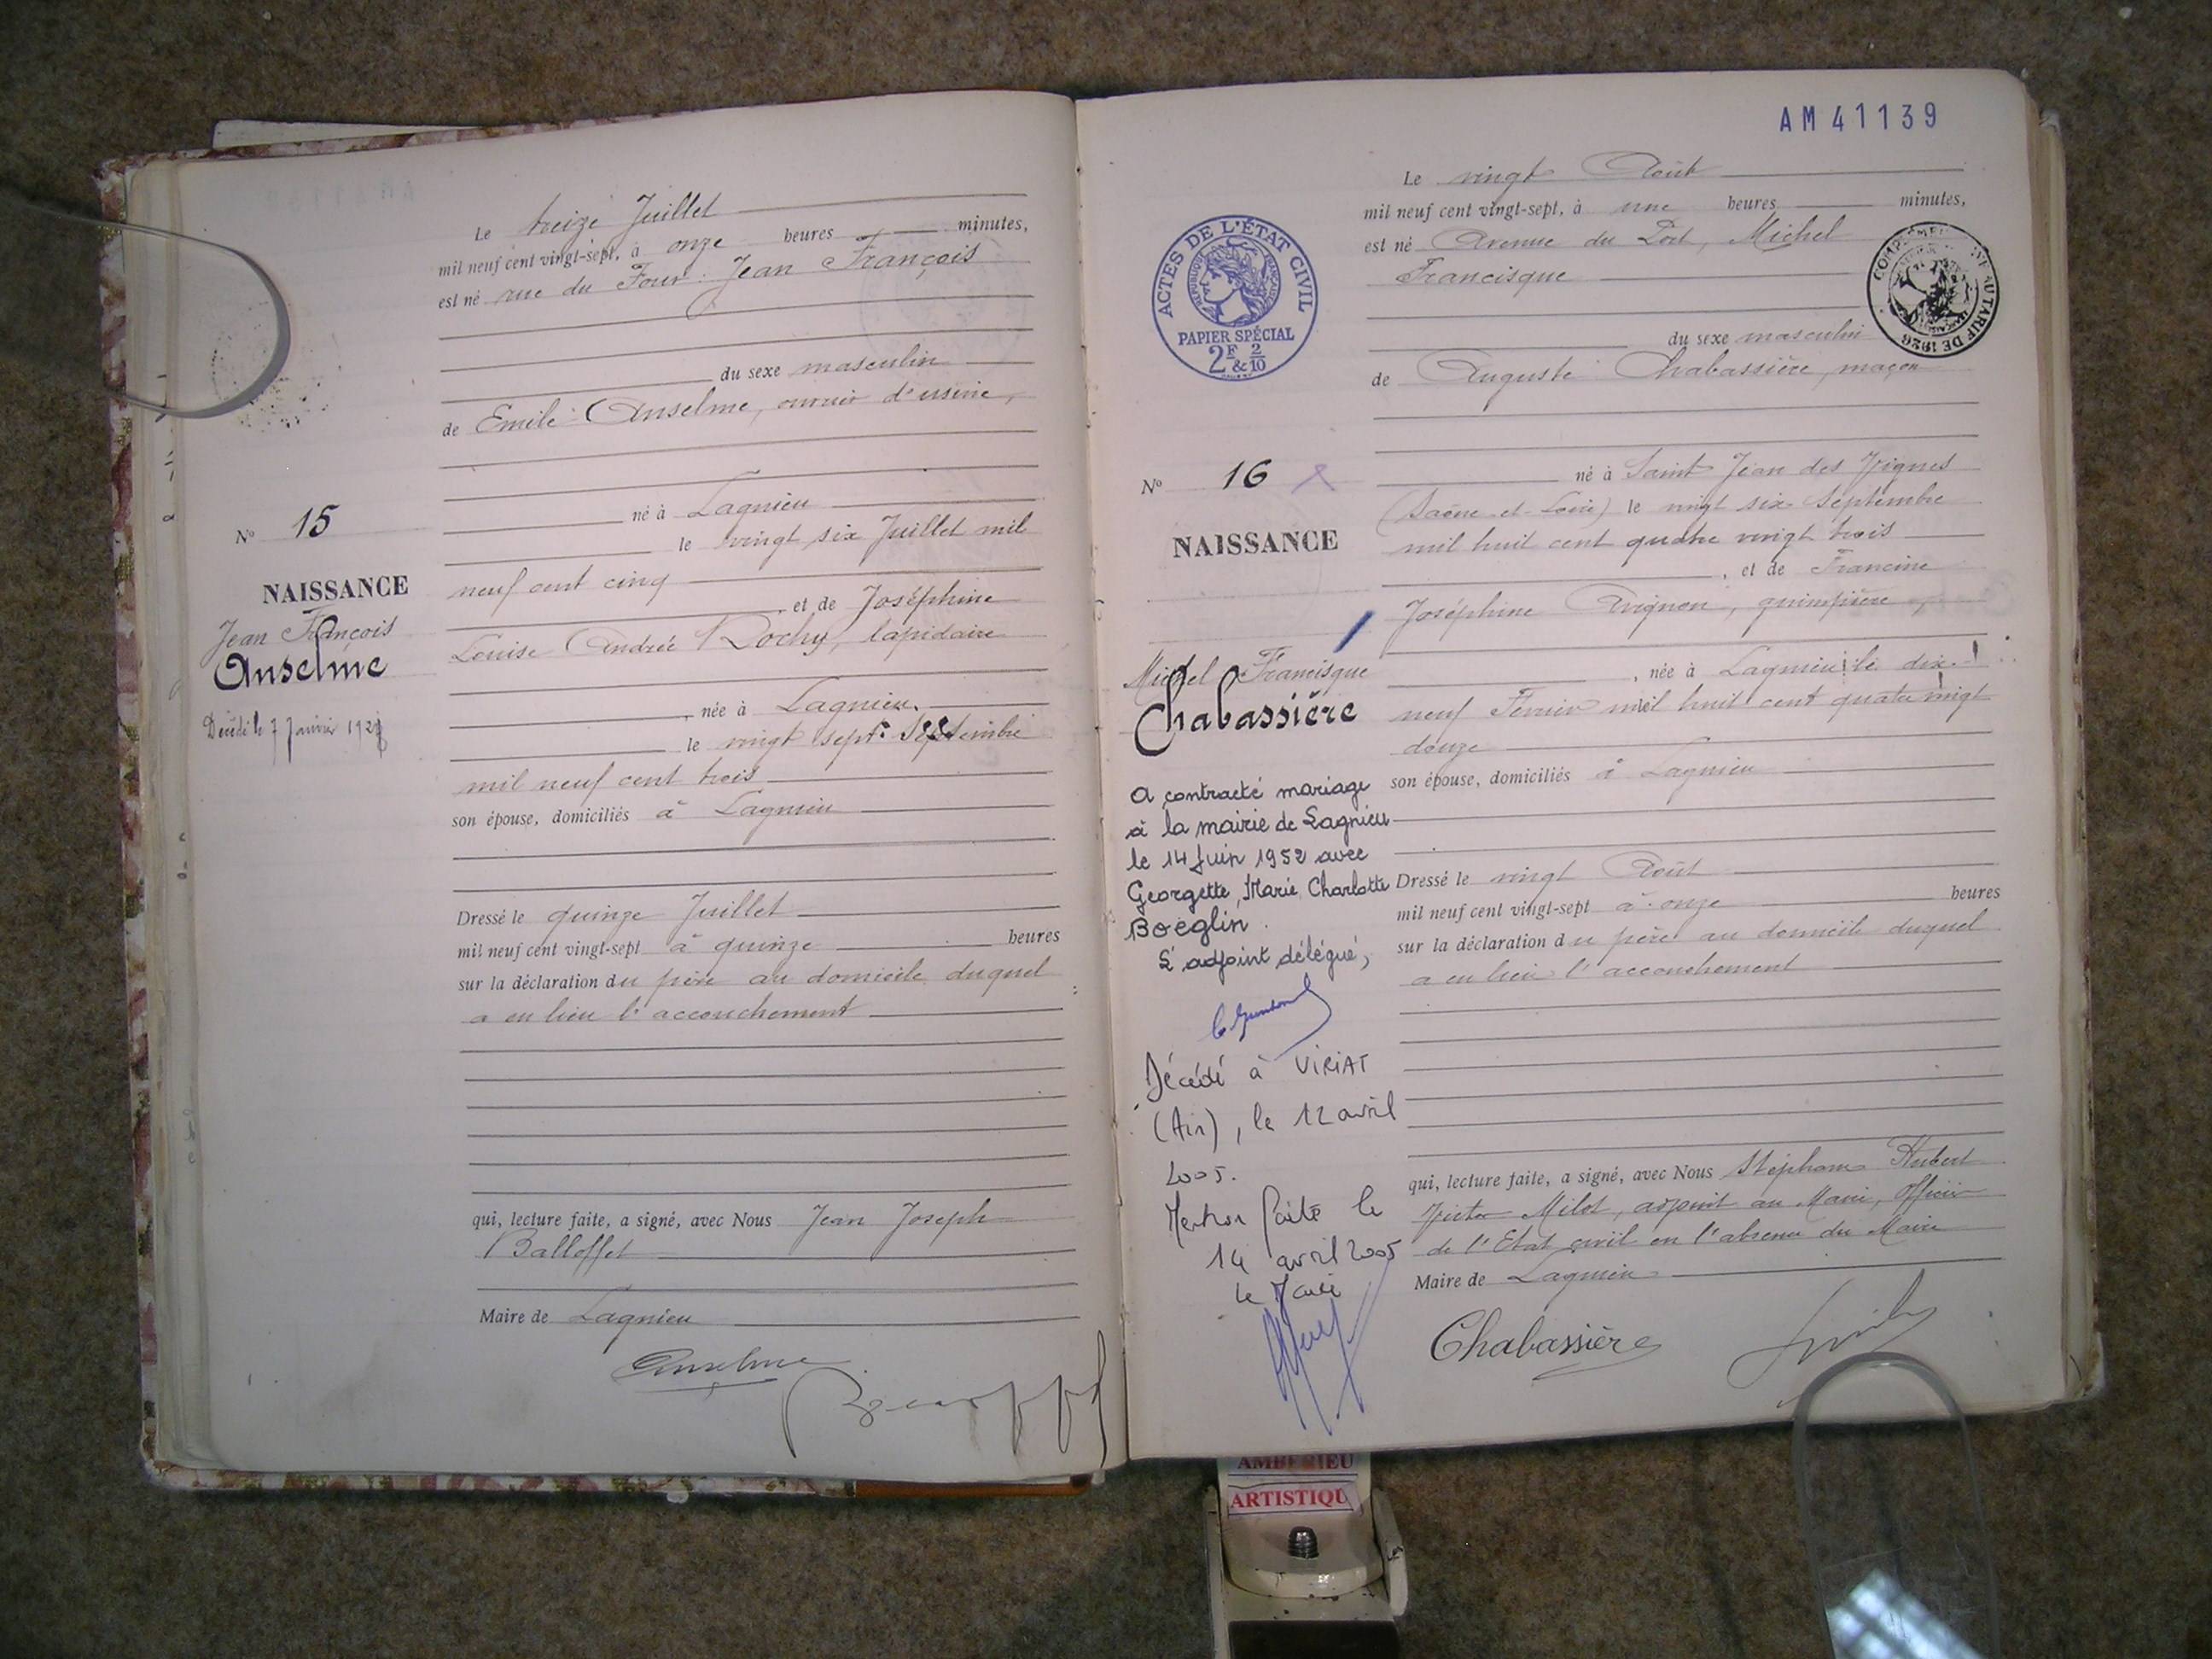 Le treize Juillet
mil neuf cent vingt-sept, à onze heures minutes,
est né rue du Four Jean François
du sexe masculin
de Emile Anselme, ouvrier d'usine,
né à Lagnieu
le vingt six Juillet mil
neuf cent cinq
, et de Joséphine
Louise Andrée Rochy, lapidaire
, née à Lagnieu
le vingt sept Septembre
mil neuf cent trois
son épouse, domiciliés à Lagnieu
Dressé le quinze Juillet
mil neuf cent vingt-sept à quinze heures
sur la déclaration du père au domicile duquel
a eu lieu l'accouchement
qui, lecture faite, a signé, avec Nous Jean Joseph
Balloffet
Maire de Lagnieu
Anselme
No 15
NAISSANCE
Jean François
Anselme
Décédé le 7 Janvier
AM41139
Le vingt Août
mil neuf cent vingt-sept, à une heures minutes,
est né Avenue du Port, Michel
Francisque
du sexe masculin
de Auguste Chabassière, maçon
né à Saint Jean des Vignes
(Saône-et-Loire) le vingt six Septembre
mil huit cent quatre vingt trois
, et de Francine
Joséphine Avignon, guimpière,
, née à Lagnieu le dix
neuf Février mil huit cent quatre vingt
douze
son épouse, domiciliés à Lagnieu
Dressé le vingt Août
mil neuf cent vingt-sept à onze heures
sur la déclaration du père au domicile duquel
a eu lieu l'accouchement
qui, lecture faite, a signé, avec Nous Stéphane Hubert
Victor Milot, adjoint au Maire, Officier
de l'Etat civil en l'absence du Maire
Maire de Lagnieu
Chabassière
ACTES DE L'ÉTAT CIVIL
RÉPUBLIQUE FRANÇAISE
PAPIER SPÉCIAL
2F & 2/10
TARIF DE 1926
No 16
NAISSANCE
Michel Francisque
Chabassière
A contracté mariage
à la mairie de Lagnieu
le 14 Juin 1952 avec
Georgette, Marie, Charlotte
Boeglin.
L'adjoint délégué,
Décédé à VIRIAT
(Ain), le 12 avril
2005.
Mention faite le
14 avril 2005
Le Maire
AMBERIEU
ARTISTIQU